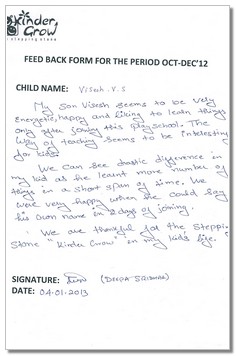 Kinder
Grow
a stepping stone
FEED BACK FORM FOR THE PERIOD OCT-DEC'12
CHILD NAME: Visesh.V.S
My Son Visesh seems to be very
energetic, happy and liking to learn things
only after joining this playschool. The
way of teaching seems to be interesting
for kids.
We can see drastic difference in
my kid as he learnt more number of
things in a short span of time. We
were very happy when he could say
his own name in 2 days of joining.
We are thankful for the Stepping
Stone "Kinder Grow" in my kid's life.
SIGNATURE: (DEEPA SRIDHAR)
DATE: 04.01.2013